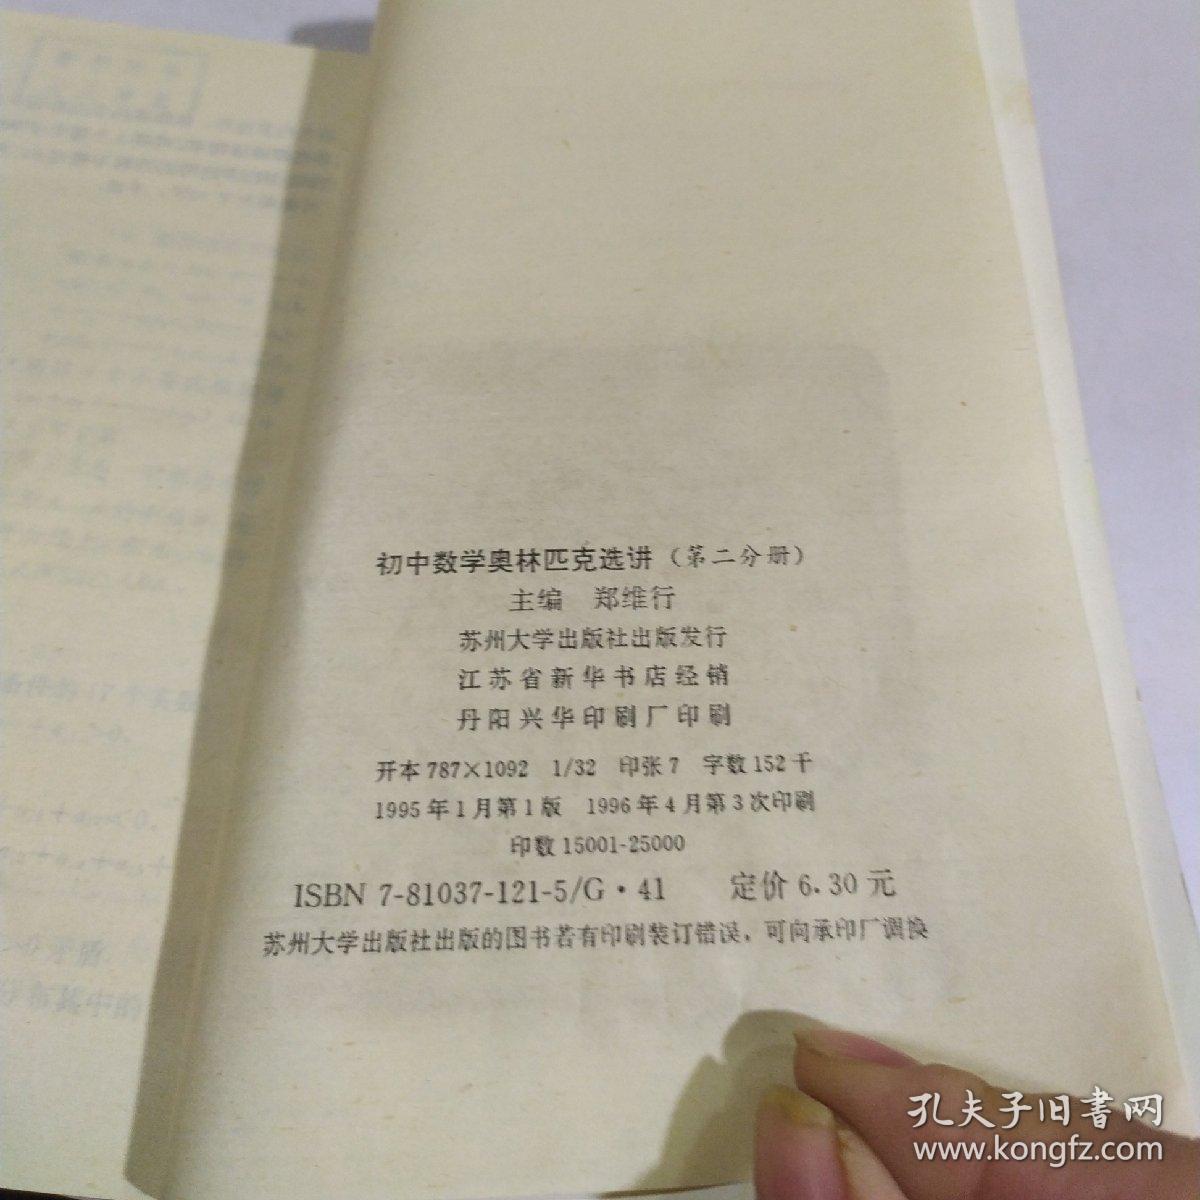 初中数学奥林匹克选讲（第二分册）
主编 郑维行
苏州大学出版社出版发行
江苏省新华书店经销
丹阳兴华印刷厂印刷
开本 787×1092 1/32 印张 7 字数 152 千
1995 年 1 月第 1 版 1996 年 4 月第 3 次印刷
印数 15001-25000
ISBN 7-81037-121-5/G·41 定价 6.30 元
苏州大学出版社出版的图书若有印刷装订错误，可向承印厂调换
孔夫子旧书网
www.kongfz.com